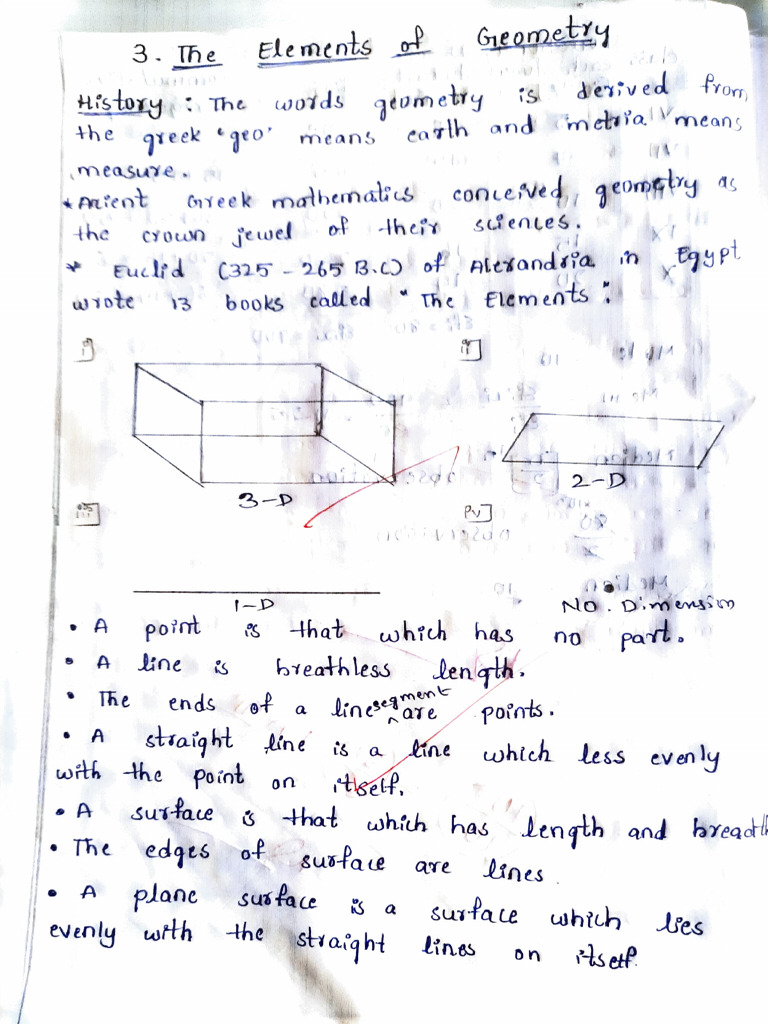 3. The Elements of Geometry
History : The words geometry is derived from
the greek 'geo' means earth and "metria" means
measure.
* Anient Greek mathematics conceived geometry as
the crown jewel of their sciences.
* Euclid (325 - 265 B.C) of Alexandria in Egypt
wrote 13 books called "The Elements".
i]
ii]
3-D
2-D
iii]
iv]
1-D
No. Dimension
• A point is that which has no part.
• A line is breathless length.
• The ends of a line segment are points.
• A straight line is a line which less evenly
with the point on itself.
• A surface is that which has length and breadth
• The edges of surface are lines.
• A plane surface is a surface which lies
evenly with the straight lines on itself.